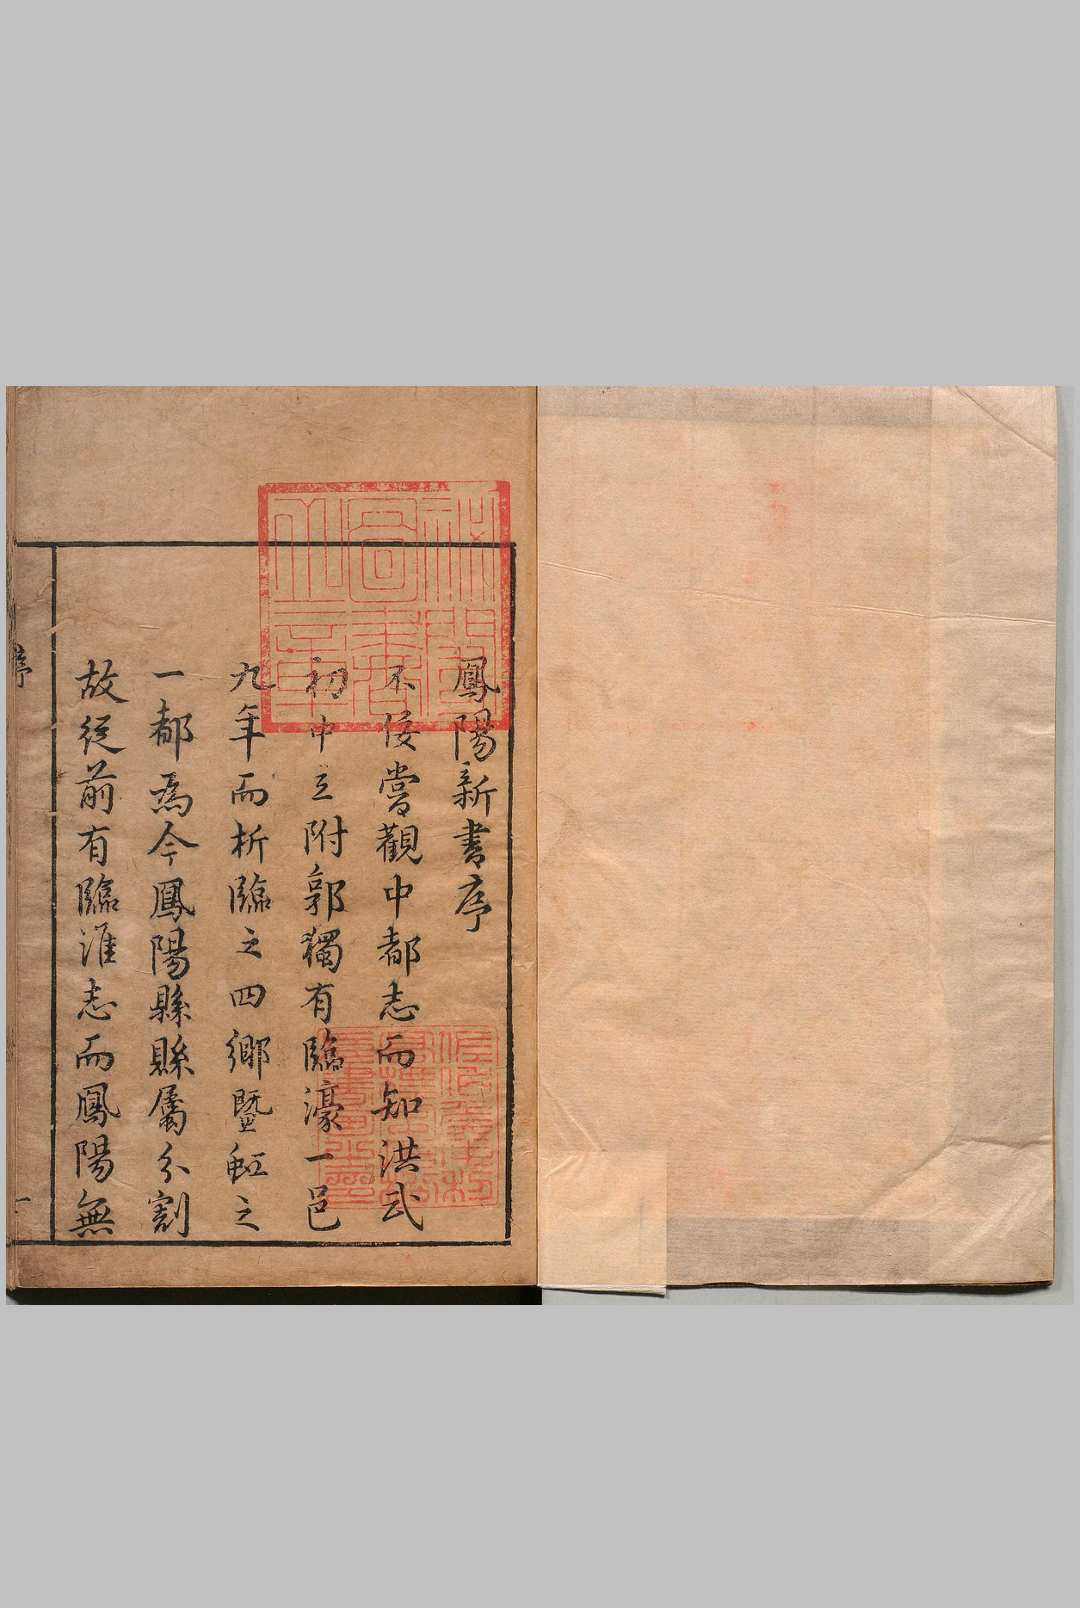 鳳陽新書序
不佞嘗觀中都志而知洪武
初中立附郭獨有臨濠一邑
九年而析臨之四鄉暨虹之
一都為今鳳陽縣縣屬分割
故從前有臨淮志而鳳陽無
序
一